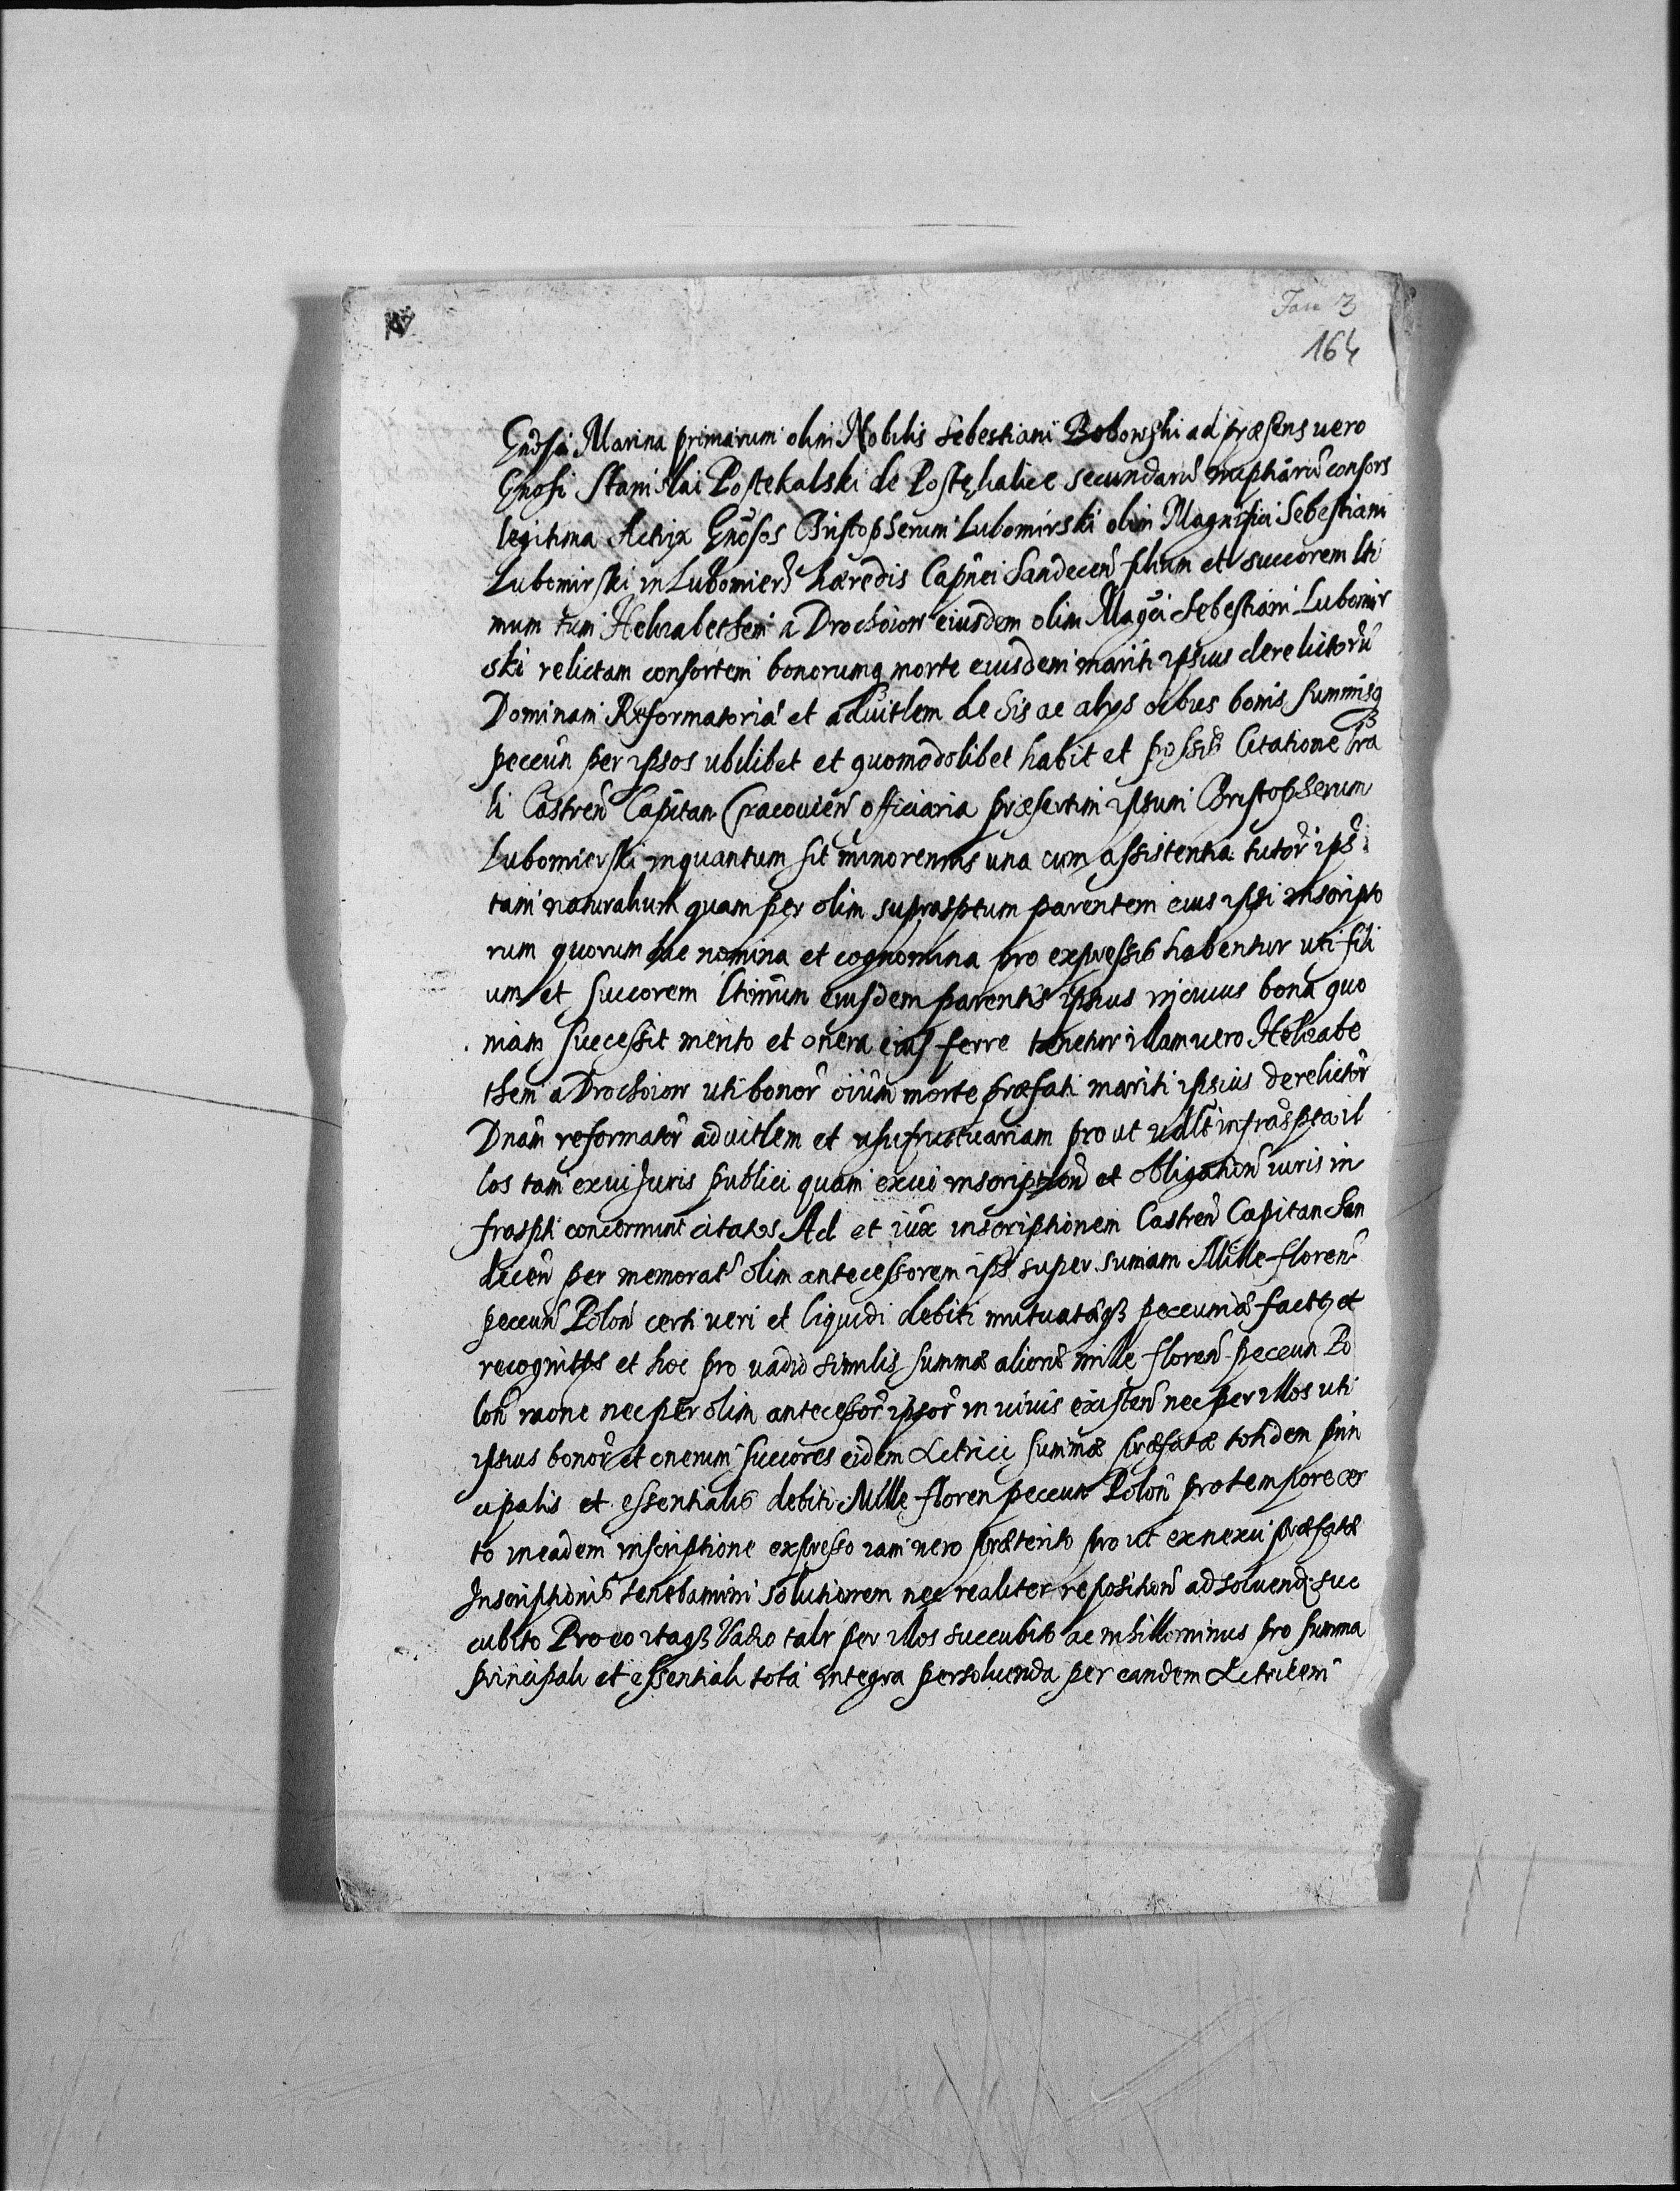 Fasc 3
164
Gnosa Marina primarum olim Nobilis Sebestiani Bobowski ad præsens vero
Gnosi Stanislai Postekalski de Postękalice secundarū nuptiarū consors
legitima Actrix Gnosos Christopherum Lubomirski olim Magnifici Sebestiani
Lubomirski in Lubomierz hæredis Capnei Sandecen filium et succorem lti
mum tum Helzabethem a Drochoiow eiusdem olim Magci Sebestiani Lubomir
ski relictam consortem bonorumq morte eiusdem mariti ipsius derelictorū
Dominam Reformatoria et advitlem de his ac alys oibus bonis summisq
peccun per ipsos ubilibet et quomodolibet habit et possis Citatione lra
li Castren Capitan Cracovien officiaria præsertim ipsum Christopherum
Lubomierski inquantum sit minorennis una cum assistentia tutor ips
tam naturalium quam per olim suprasptum parentem eius ipsi inscripto
rum quorum hic nomina et cognomina pro expressis habentur uti fili
um et succorem ltimum eiusdem parentis ipsius in cuius bona quo
niam successit merito et onera eius ferre tenetur illam vero Helzabe
them a Drochoiow uti bonor oium morte præfati mariti ipsius derelictor
Dnam reformator advitlem et usufructuariam pro ut vallt infraspta il
los tam ex vi Juris publici quam ex vi inscription et obligation iuris in
fraspti concernunt citatos Ad et iuxa inscriptionem Castren Capitan San
decen per memorat olim antecessorem ips super sumam Mille floren
peccun Polon certi veri et liquidi debiti mutuatæq peccuniæ fact et
recognit et hoc pro vadio similis summæ alioris mille floren peccun Po
lon raone nec per olim antecessor ipsor in vivis existen nec per illos uti
ipsius bonor et onerum succores eidem Actrici summæ præfatæ totidem prin
cipalis et essentialis debiti Mille floren peccun Polon pro tempore cer
to in eadem inscriptione expresso iam vero præterito pro ut ex nexu præfatæ
Inscriptionis tenebamini solutionem nec realiter reposition ad solvend suc
cubito Pro eo itaq Vadio tali per illos succubito ac nihillominus pro summa
principali et essentiali tota integra persolvenda per eandem Actricem